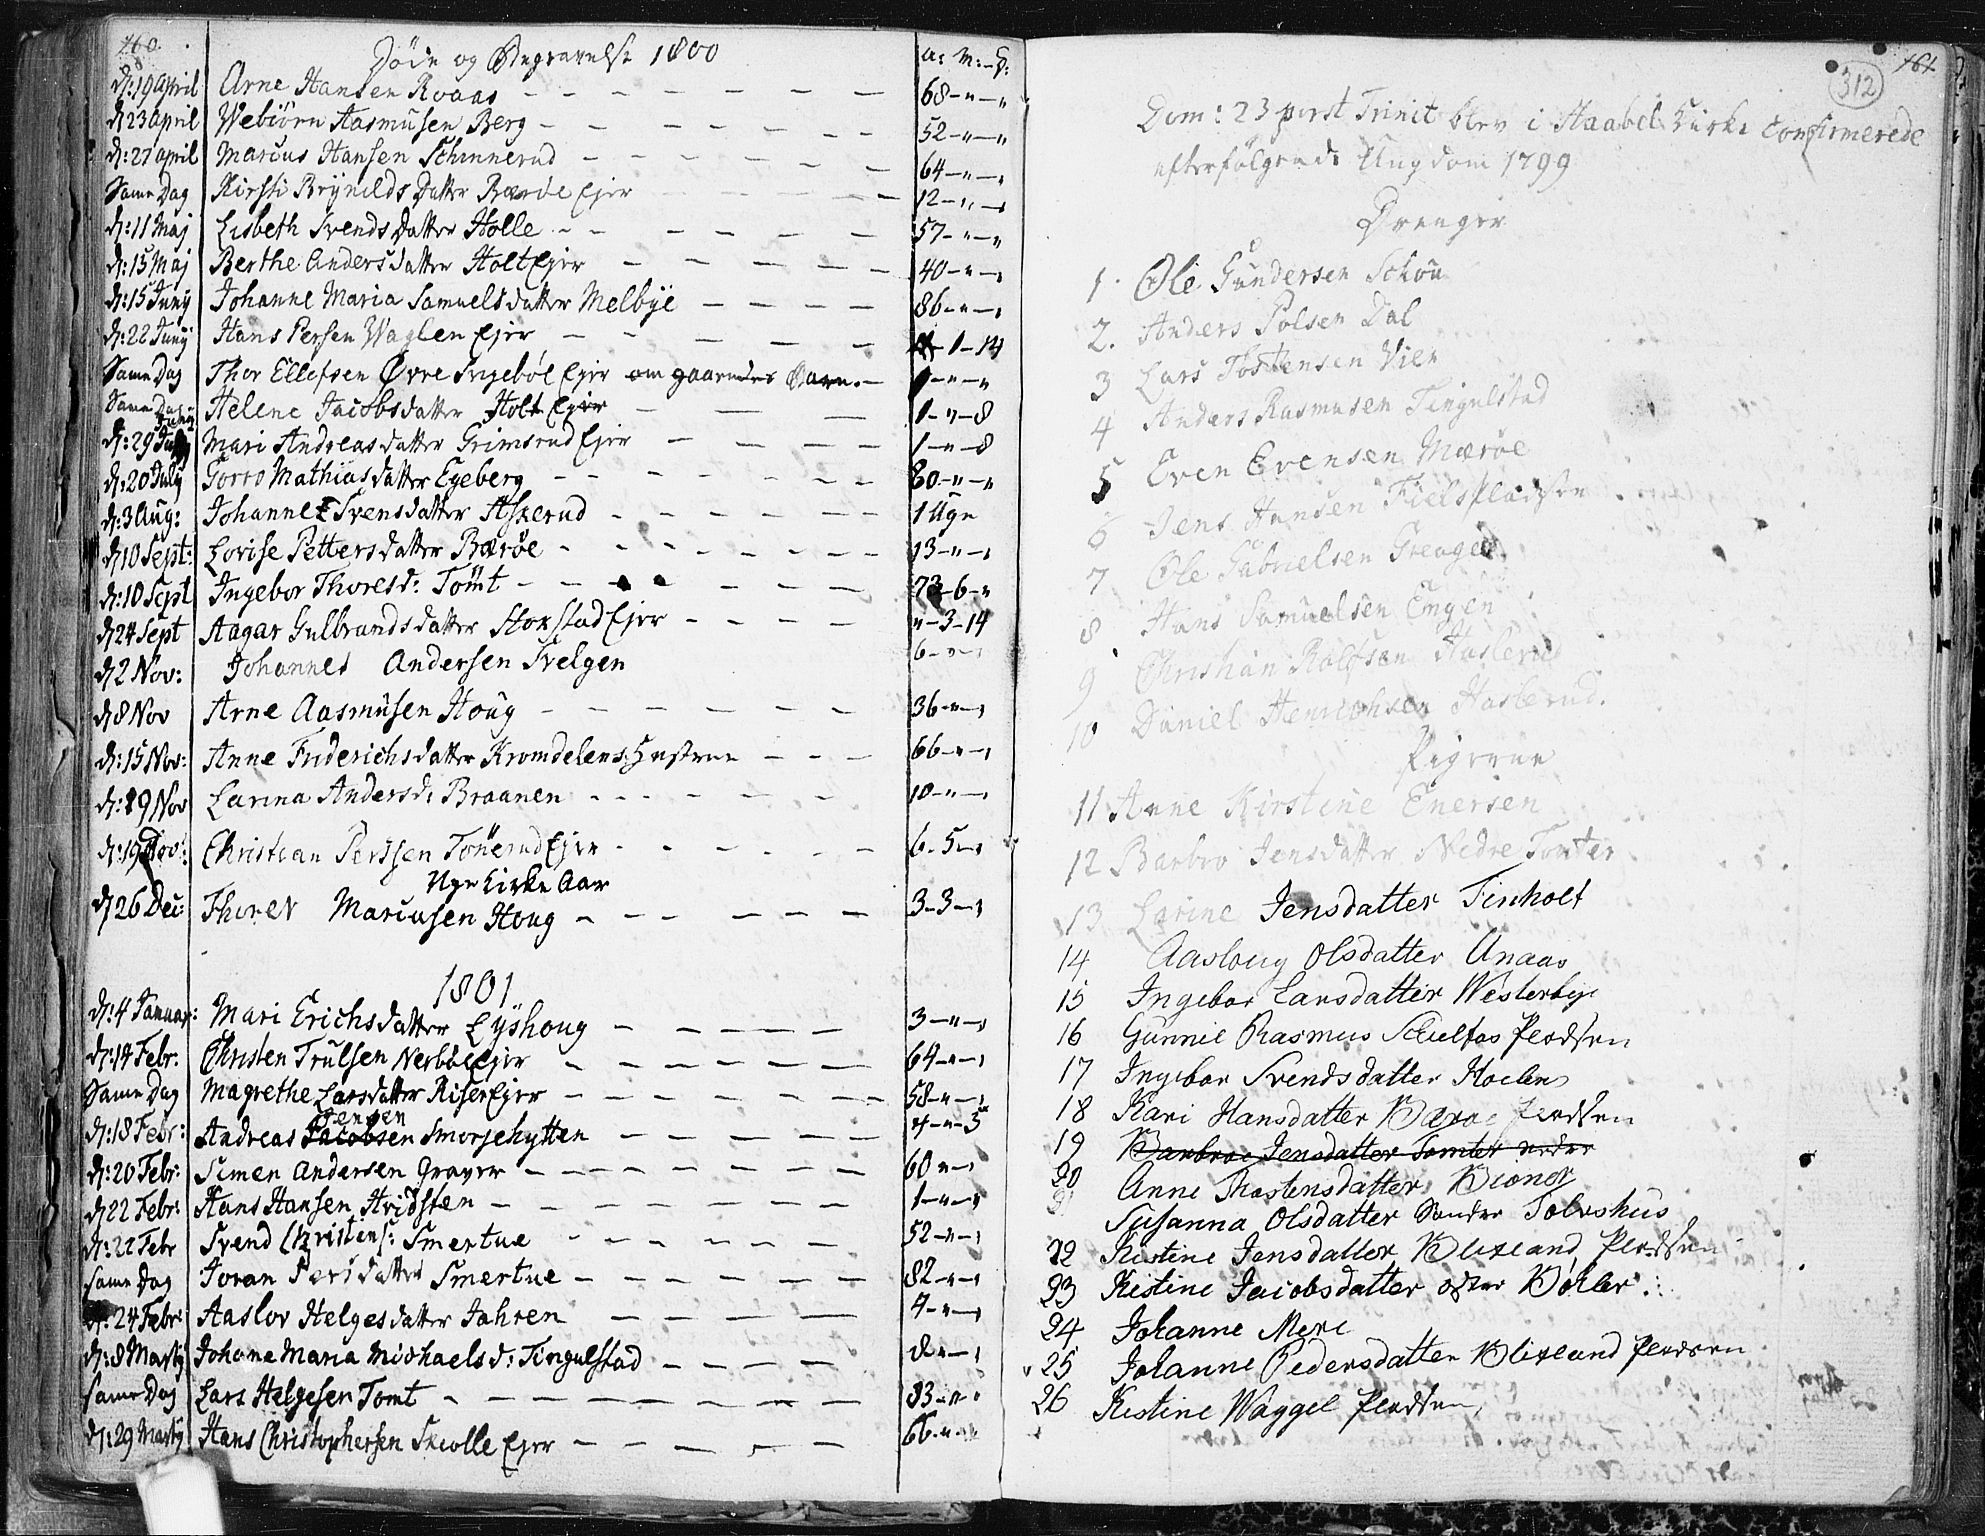 160.
Døde og Begravelse 1800
A: M: D:
d: 19 April Arne Hansen Roaas 68 - " - "
d 23 April Webiørn Aasmusen Berg 52 - " - "
d: 27 April Marcus Hansen Schinnerud 64 - " - "
Same Dag Kirsti Brynilds Datter Bærøe Ejer 12 - " - "
d: 11 Maj Lisbeth Svends Datter Holle 57 - " - "
d: 15 Maj Berthe Anders datter Holt Ejer 40 - " - "
d: 15 Juny Johanne Maria Samuels datter Melbye 86 - " - "
d: 22 Juny Hans Persen Waglen Ejer 1 - 14
Same Dag Thor Ellefsen Øvre Ingebøl Ejer 1 - " - "
Same Dag Helene Jacobsdatter Holt Ejer 1 - " - 8
d: 29 Juny Mari Andreas datter Grimsrud Ejer 1 - " - 8
d: 20 July Gorro Mathias datter Egeberg 80 - " - "
d: 3 Aug: Johanne Svens datter Askerud 1 Uge
d 10 Sept: Lovise Petters datter Bærøe 13 - " - "
d: 10 Sept Ingebor Thoresd: Tomt 73 - 6 - "
d 24 Sept Aagar Gulbrands datter Storstad Ejer " - 3 - 14
d 2 Nov: Johannes Andersen Svelgen 6 - " - "
d 8 Nov Arne Aasmusen Houg 36 - " - "
d: 15 Nov: Anne Friderichs datter Kromdelens Hustrue 66 - " - "
d: 19 Nov Larina Andersd: Braanen 10 - " - "
d: 19 Nov: Christian Perssen Tønerud Ejer 6 - 5 - "
Nye Kirke Aar
d 26 Dec: Thorer Marcusen Houg 3 - 3 - "
1801
d: 4 Januar: Mari Erichsdatter Lyshoug 3 - " - "
d: 14 Febr: Christen Trulsen Nerbøl Ejer 64 - " - "
Same Dag Magrethe Larsdatter Riser Ejer 58 - " - "
Jensen
d: 18 Febr: Andreas Jacobsen Smorjehytten 4 - " - 3
d: 20 Febr: Simen Andersen Graver 60 " - "
d 22 Febr: Hans Hansen Hvidsten 1 - " - "
d: 22 Febr Svend Christens: Smertue 52 - " - "
same Dag Joran Pers datter Smertue 82 - " - "
d: 24 Febr: Aaslov Helges datter Jahren 4 - " - "
d: 8 Marty Johane Maria Michaels d: Tingulstad 2 " - "
same Dag Lars Helgesen Tomt 83 - " - "
d: 29 Marty Hans Christophersen Skiolle Ejer 66 - " - "
161
312
Dom: 23 post Trinit blev i Haabel Kirke Confirmerede
efterfølgende Ungdom 1799
Drenger
1. Ole Gundersen Schou
2. Anders Polsen Dal
3 Lars Tostensen Vien
4 Anders Rasmusen Tingulstad
5 Even Evensen Mærøe
6 Jens Hansen Fiels Pladsen
7 Ole Gabrielsen Grenge
8 Hans Samuelsen Engen
9 Christian Rolfsen Haslerud
10 Daniel Henrichsen Haslerud.
Pigerne
11 Anne Kirstine Enersen
12 Barbro Jensdatter Nedre Tomter
13 Larine Jensdatter Finholt
14 Aasloug Olsdatter Unaas
15 Ingebor Larsdatter Westerbye
16 Gunnie Rasmus Pladsen
17 Ingebor Svendsdatter Hoelen
18 Kari Hansdatter Bærøe Pladsen
19 Barbroe Jensdatter Tomter nedre
20 Anne Thostensdatter Biøner
21 Susanna Olsdatter Søndre Tolvshus
22 Kistine Jensdatter Blixeland Pladsen
23 Kistine Jacobsdatter øster Bøhler
24 Johanne Mere
25 Johanne Pedersdatter Blixeland Pladsen
26 Kistine Waggel Pladsen